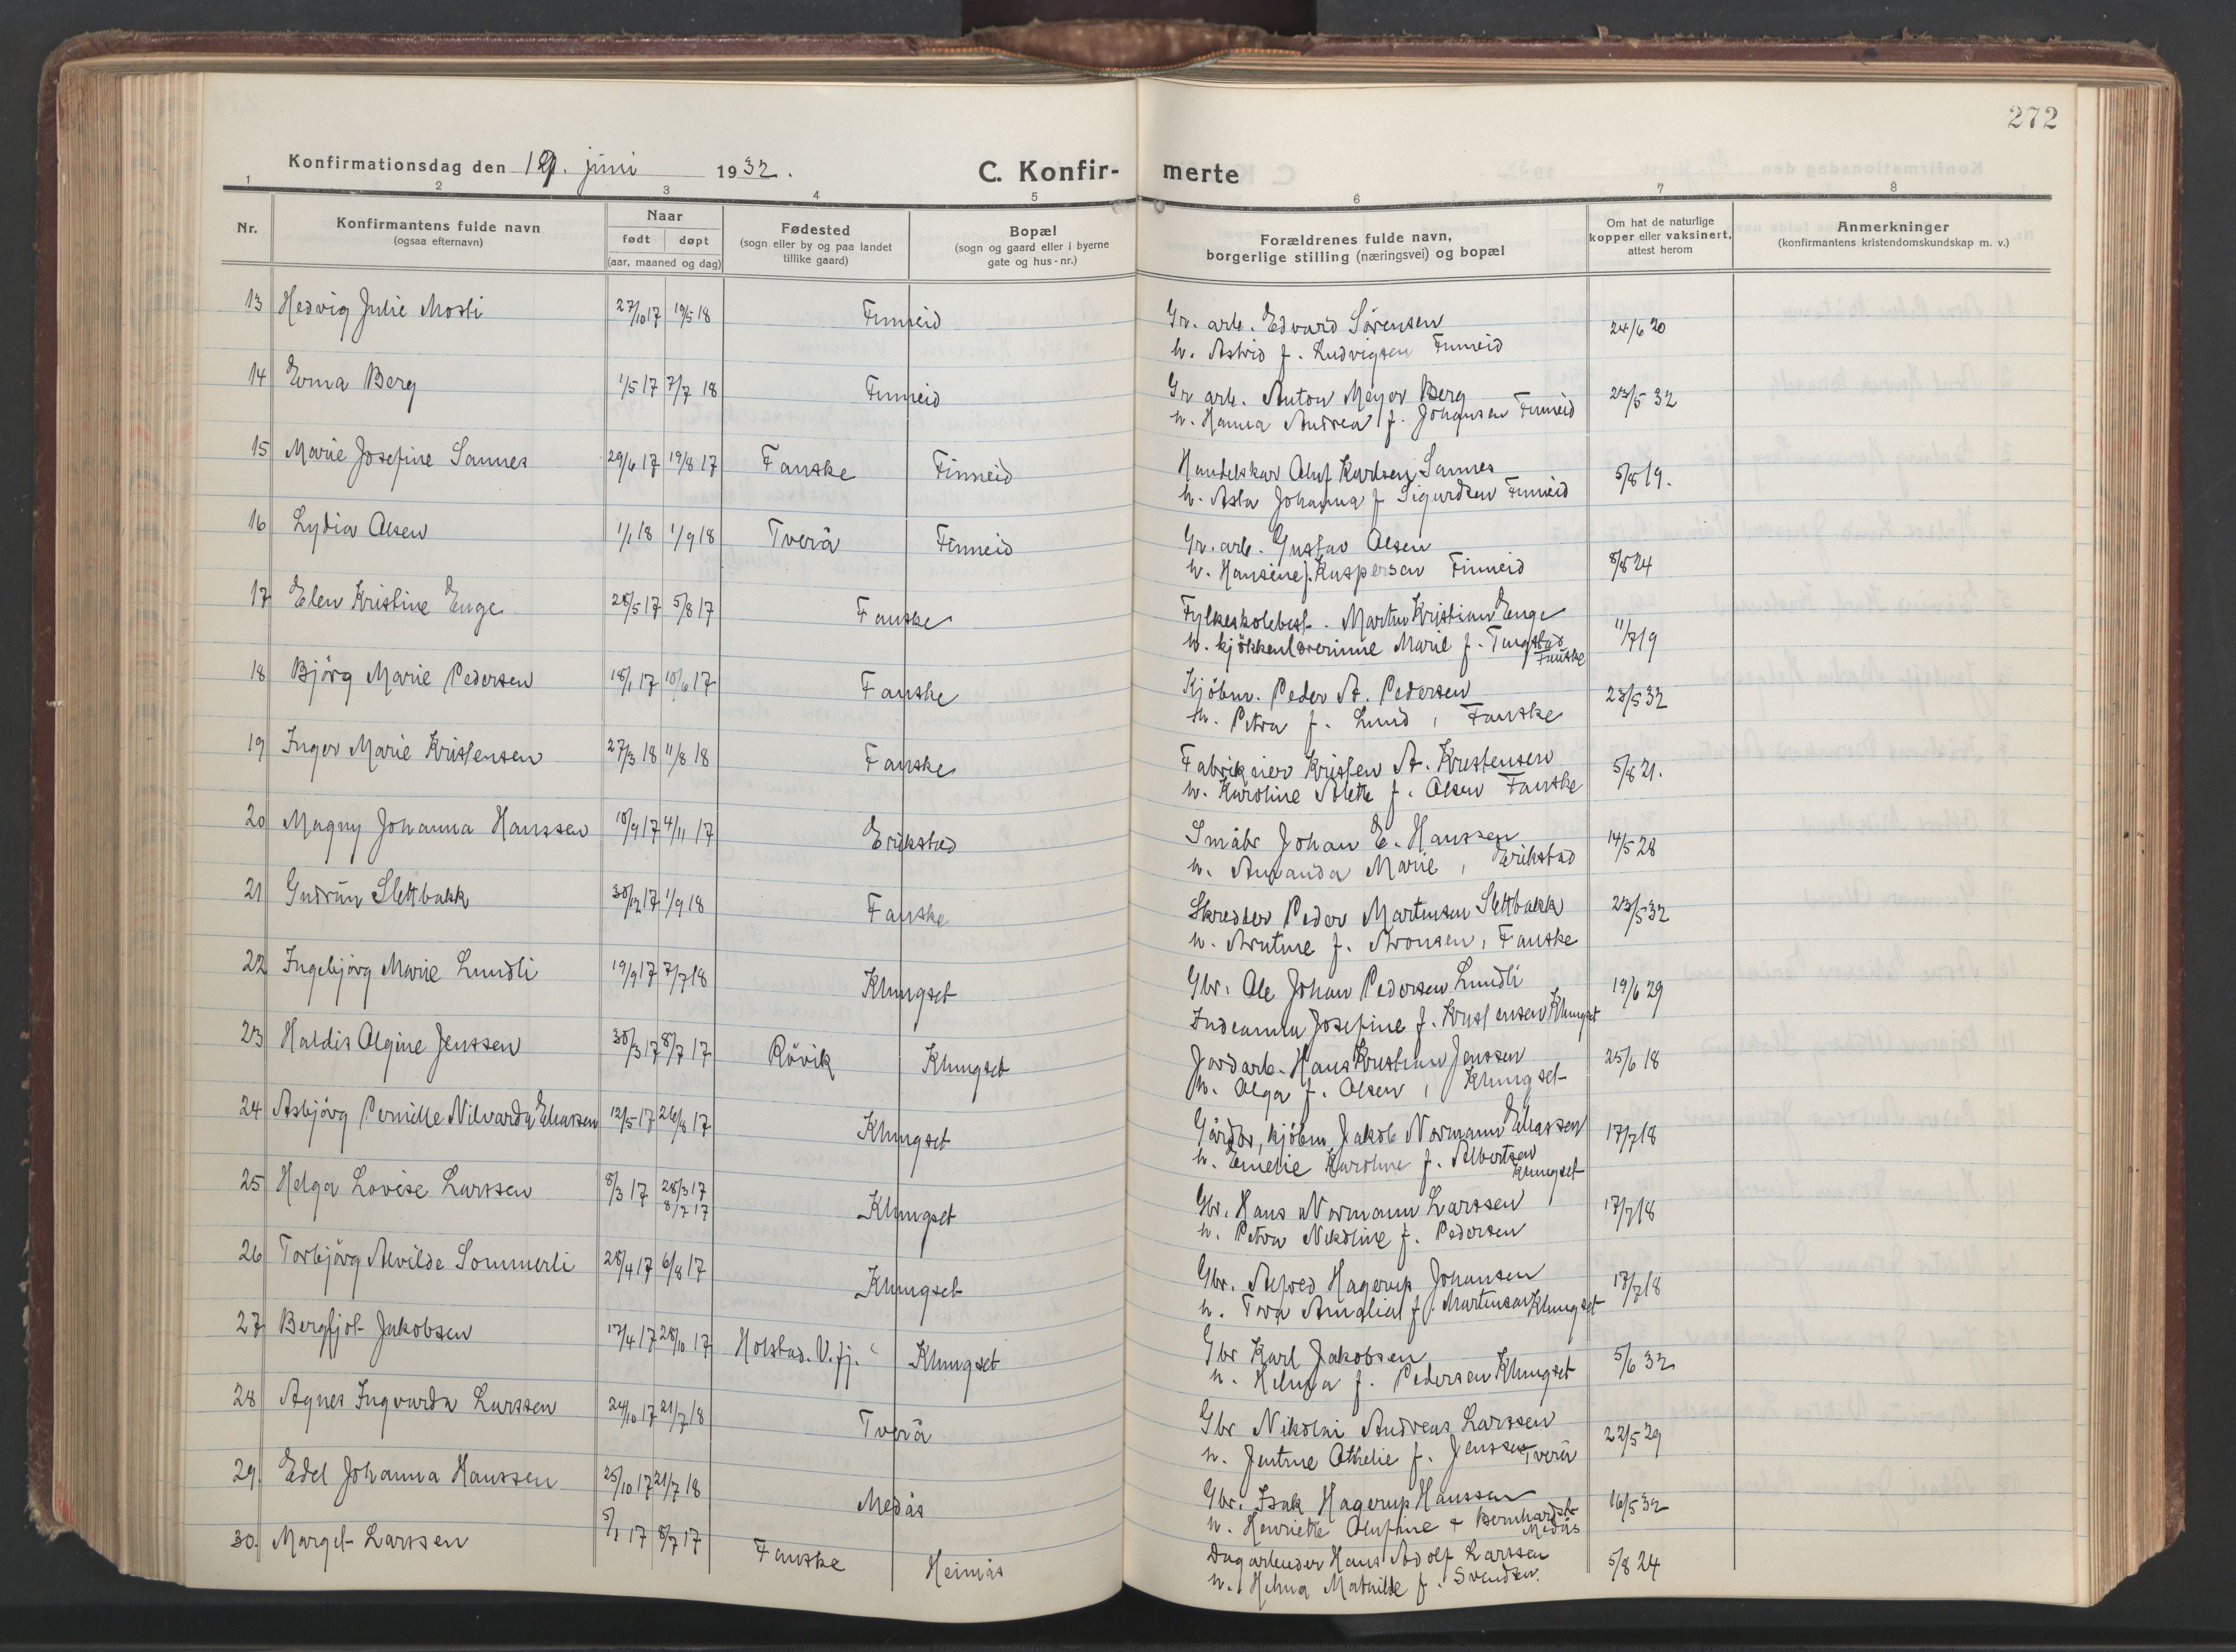 272
Konfirmationsdag den 19. juni 1932.
C. Konfir- merte
1 2 3 4 5 6 7 8
Nr.
Konfirmantens fulde navn
(ogsaa efternavn)
Naar
født døpt
(aar, maaned og dag)
Fødested
(sogn eller by og paa landet
tillike gaard)
Bopæl
(sogn og gaard eller i byerne
gate og hus-nr.)
Forældrenes fulde navn,
borgerlige stilling (næringsvei) og bopæl
Om hat de naturlige
kopper eller vaksinert,
attest herom
Anmerkninger
(konfirmantens kristendomskundskap m. v.)
13 Hedvig Julie Mosti 27/10 17 19/5 18 Finneid Gr. arb. Edvard Sørensen 24/6 20
h. Astrid f. Ludvigsen Finneid
14 Erna Berg 1/5 17 7/7 18 Finneid Gr arb. Anton Meyer Berg 23/5 32
h. Hanna Andrea f. Johansen Finneid
15 Marie Josefine Sannes 29/6 17 19/8 17 Fauske Finneid Handelskar Oluf Karlsen Sannes 5/8 19.
h. Asta Johanna f Sigurdsen Finneid
16 Lydia Olsen 1/1 18 1/9 18 Tverå Finneid Gr. arb. Gustav Olsen 8/8 24
h. Hansine f. Kaspersen Finneid
17 Elen Kristine Enge 28/5 17 5/8 17 Fauske Fylkesskolebest. Martin Kristian Enge 11/7 19
h. kjökkenlærerinne Marie f. Tungstad
Fauske
18 Björg Marie Pedersen 18/1 17 10/6 17 Fauske Kjöbm. Peder A. Pedersen 23/5 32
h. Petra f. Lund, Fauske
19 Inger Marie Kristensen 27/3 18 11/8 18 Fauske Fabrikeier Kristen A. Kristensen 5/8 21.
h. Karoline Solette f. Olsen Fauske
20 Magny Johanna Hanssen 18/9 17 4/11 17 Erikstad Småbr Johan E. Hanssen 14/5 28
h. Amanda Marie, Erikstad
21 Gudrun Slettbakk 30/12 17 1/9 18 Fauske Skredder Peder Martinsen Slettbakk 23/5 32
h. Arntine f. Aronsen, Fauske
22 Ingebjörg Marie Lundli 19/9 17 7/7 18 Klungset Gbr. Ole Johan Pedersen Lundli 19/6 29
Indeanna Josefine f. Kristensen Klungset
23 Haldis Olgine Jenssen 30/3 17 8/7 17 Rövik Klungset Jordarb. Hans Kristian Jenssen 25/6 18
h. Olga f. Olsen, Klungset
24 Asbjörg Pernille Nilvarda Eliassen 12/5 17 26/8 17 Klungset Gårdbr, kjöbm Jakob Normann Eliassen 17/7 18
h. Emelie Karoline f. Albertsen
Klungset
25 Helga Lovise Larssen 8/3 17 28/3 17 Klungset Gbr. Hans Normann Larssen 17/7 18
8/7 17 h. Petra Nikoline f. Pedersen
26 Torbjörg Alvilde Sommerli 28/4 17 6/8 17 Klungset Gbr. Alfred Hagerup Johansen 17/7 18
h. Tora Amalia f. Martinsen Klungset
27 Bergljot Jakobsen 17/4 17 28/10 17 Holstad. V.fj. Klungset Gbr Karl Jakobsen 5/6 32
h. Helma f. Pedersen Klungset
28 Agnes Ingvarda Larssen 24/10 17 21/7 18 Tverå Gbr Nikolai Andreas Larssen 22/5 29
h. Jentine Othelie f. Jenssen Tverå
29. Edel Johanna Hanssen 25/10 17 21/7 18 Medås Gbr. Isak Hagerup Hanssen 16/5 32
h. Henriette Olufine f Bernhardsdt.
Medås
30. Margit Larssen 5/1 17 8/7 17 Fauske Heimås Dagarbeider Hans Adolf Larssen 5/8 24
h. Helma Mathilde f. Svendsen.